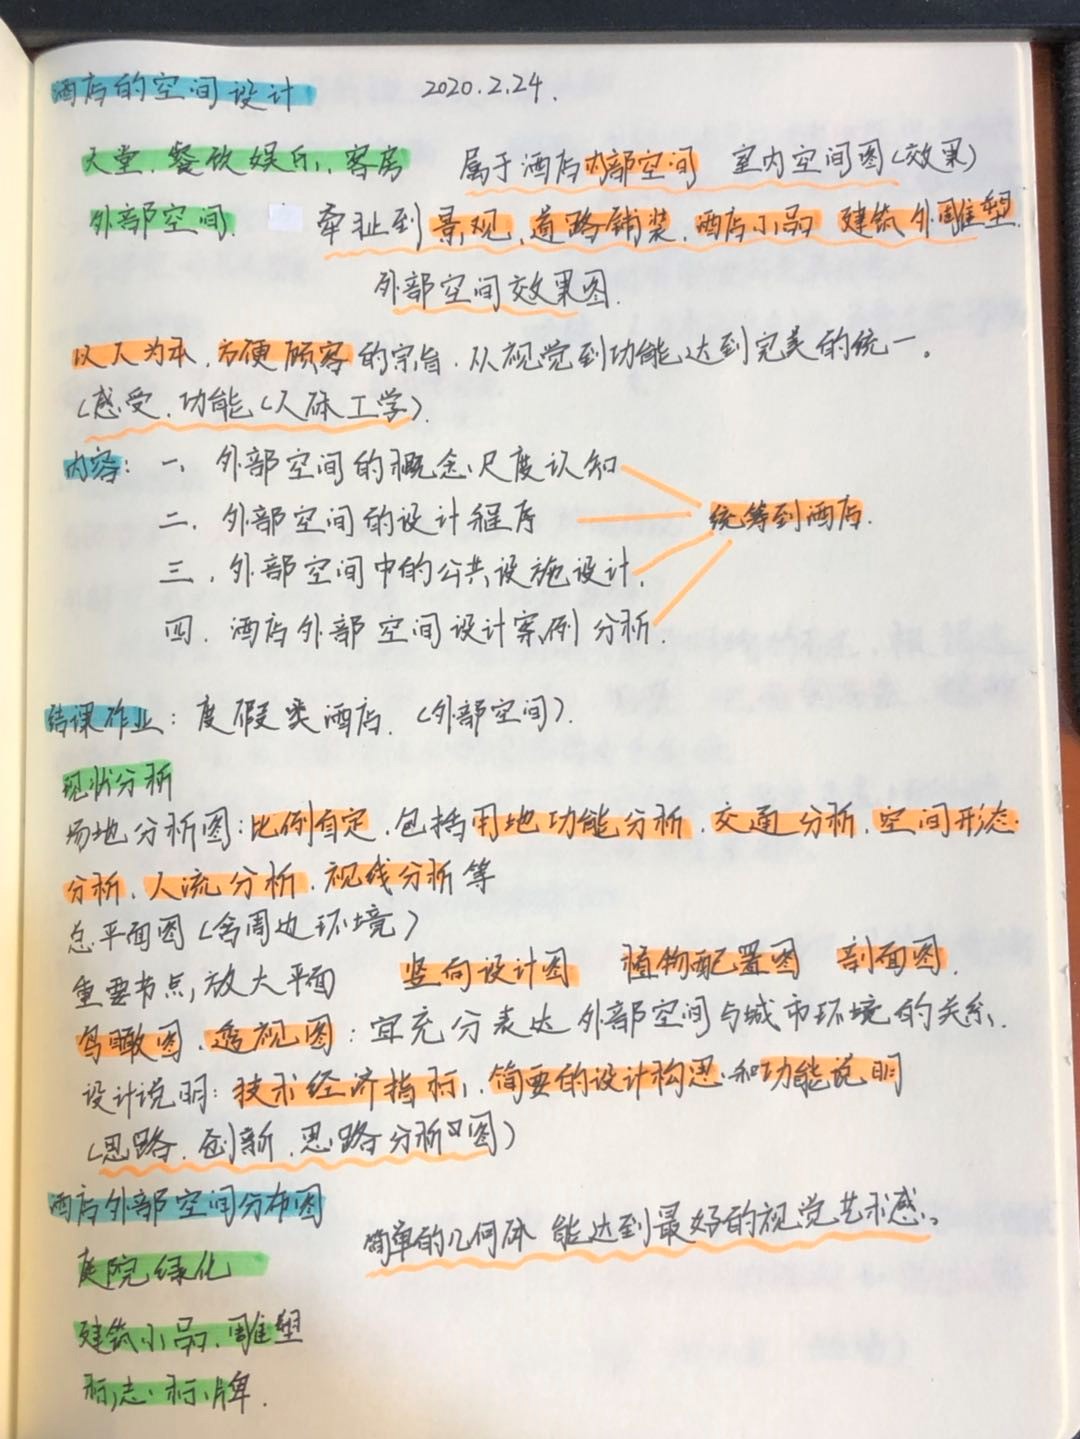 酒店的空间设计 2020.2.24.
大堂、餐饮娱乐、客房 属于酒店内部空间 室内空间图(效果)
外部空间. 牵扯到景观、道路铺装、酒店小品 建筑外雕塑.
外部空间效果图.
以人为本、方便顾客的宗旨、从视觉到功能达到完美的统一。
(感受、功能(人体工学).
内容: 一、外部空间的概念、尺度认知
二、外部空间的设计程序 统筹到酒店.
三、外部空间中的公共设施设计.
四、酒店外部空间设计案例分析.
结课作业: 度假类酒店. (外部空间).
现状分析
场地分析图: 比例自定、包括用地功能分析、交通分析、空间形态
分析、人流分析、视线分析等
总平面图(含周边环境)
重要节点放大平面 竖向设计图 植物配置图 剖面图.
鸟瞰图、透视图: 宜充分表达外部空间与城市环境的关系.
设计说明: 技术经济指标、简要的设计构思和功能说明
(思路、创新、思路分析图)
酒店外部空间分布图
简单的几何体 能达到最好的视觉艺术感。
庭院绿化
建筑小品、雕塑
标志、标牌.